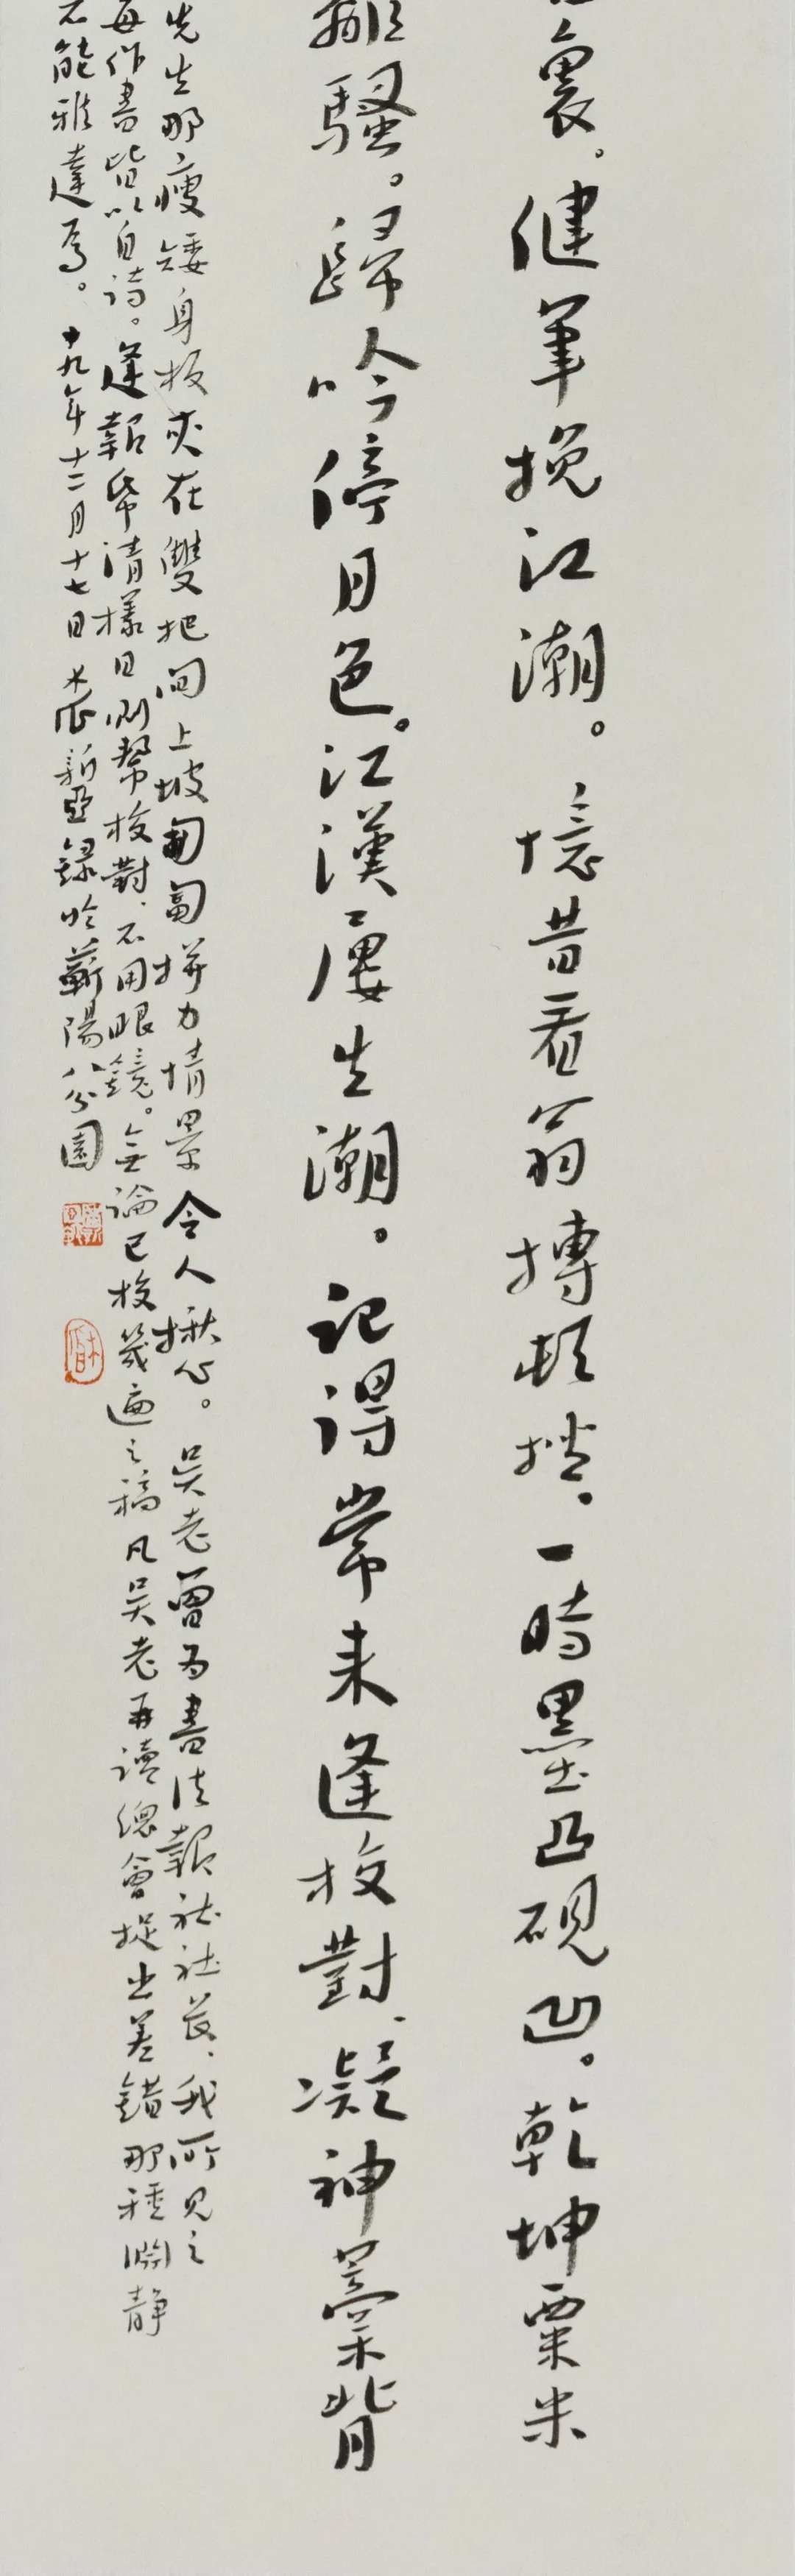 裏。健筆挽江潮。憶昔看翁搏頓捎。一時墨凸硯凹。乾坤粟米
騷。歸吟停月色。江漢屢生潮。記得常來逢校對、凝神藁背
先生那瘦矮身板夾在雙把間上坡匍匐拼力情景令人揪心。吳老曾為書法報社社長、我所見之
每作書皆以自詩。逢報紙清樣日則幫校對、不用眼鏡。無論已校幾遍之稿凡吳老再讀總會捉出差錯那種淵靜
不能雅達焉。十九年十二月十七日 新亞錄於蘄陽八分園